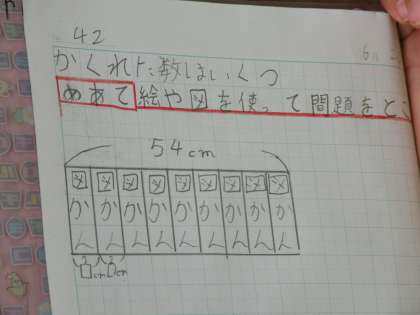 42
かくれた数はいくつ
めあて 絵や図を使って問題をと
54cm
図 図 図 図 図 図 図 図 図
か か か か か か か か か
ん ん ん ん ん ん ん ん ん
□cm □cm